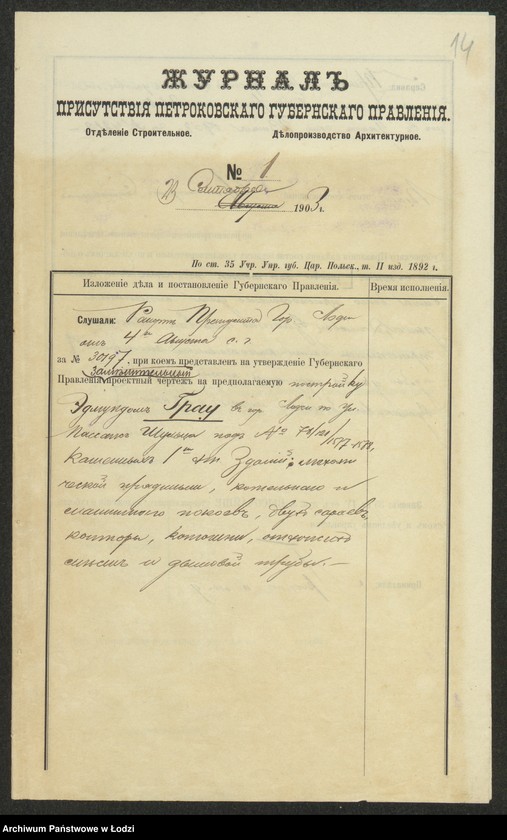 14
ЖУРНАЛЪ
ПРИСУТСТВІЯ ПЕТРОКОВСКАГО ГУБЕРНСКАГО ПРАВЛЕНІЯ.
Отдѣленіе Строительное. Дѣлопроизводство Архитектурное.
№ 1
23 Сентября
Августа 1903 г.
По ст. 35 Учр. Упр. губ. Цар. Польск., т. II изд. 1892 г.
Изложеніе дѣла и постановленіе Губернскаго Правленія. Время исполненія.
Слушали: Рапортъ Президента Гор. Лодзи
отъ 4го Августа с. г.
за № 30197, при коемъ представленъ на утвержденіе Губернскаго
Правленія проектный чертежъ на предполагаемую постройку
Эдмундомъ Грау въ гор. Лодзи по ул.
Пассажъ Шульца подъ № 
каменныхъ 1но эт. Зданій: механи
ческой прядильни, котельнаго и
машиннаго покоевъ, двухъ сараевъ,
конторы, конюшни,
и дымовой трубы.—
Archiwum Państwowe w Łodzi